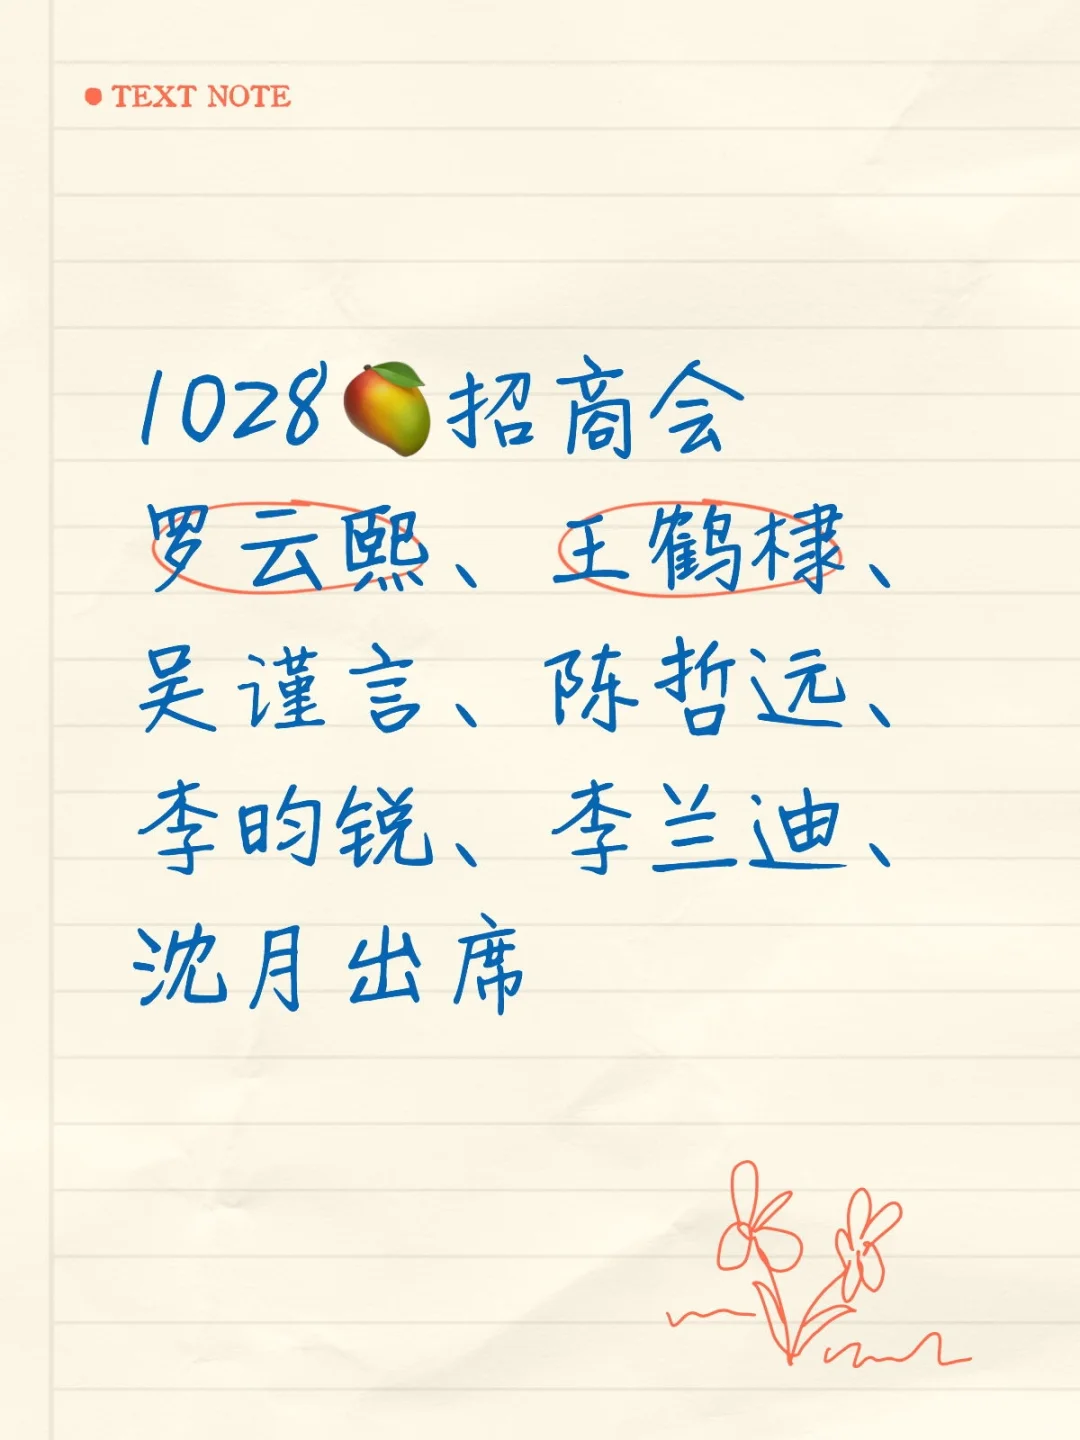 TEXT NOTE
1028🥭招商会
罗云熙、王鹤棣、
吴谨言、陈哲远、
李昀锐、李兰迪、
沈月出席